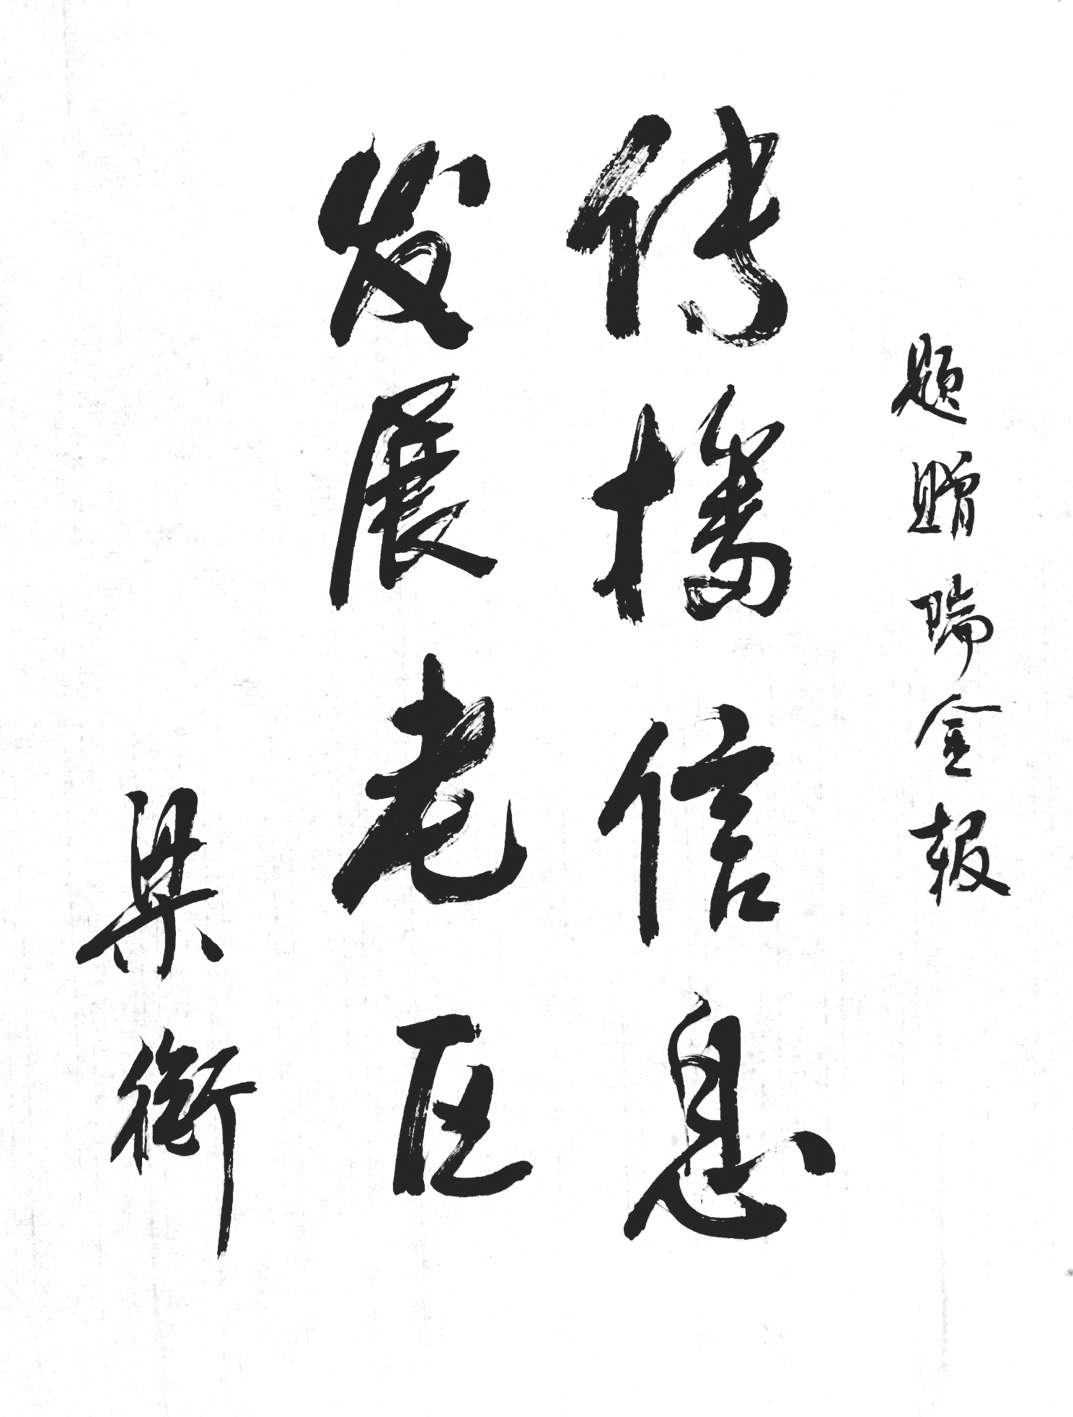 题赠瑞金报
传播信息
发展老区
梁衡